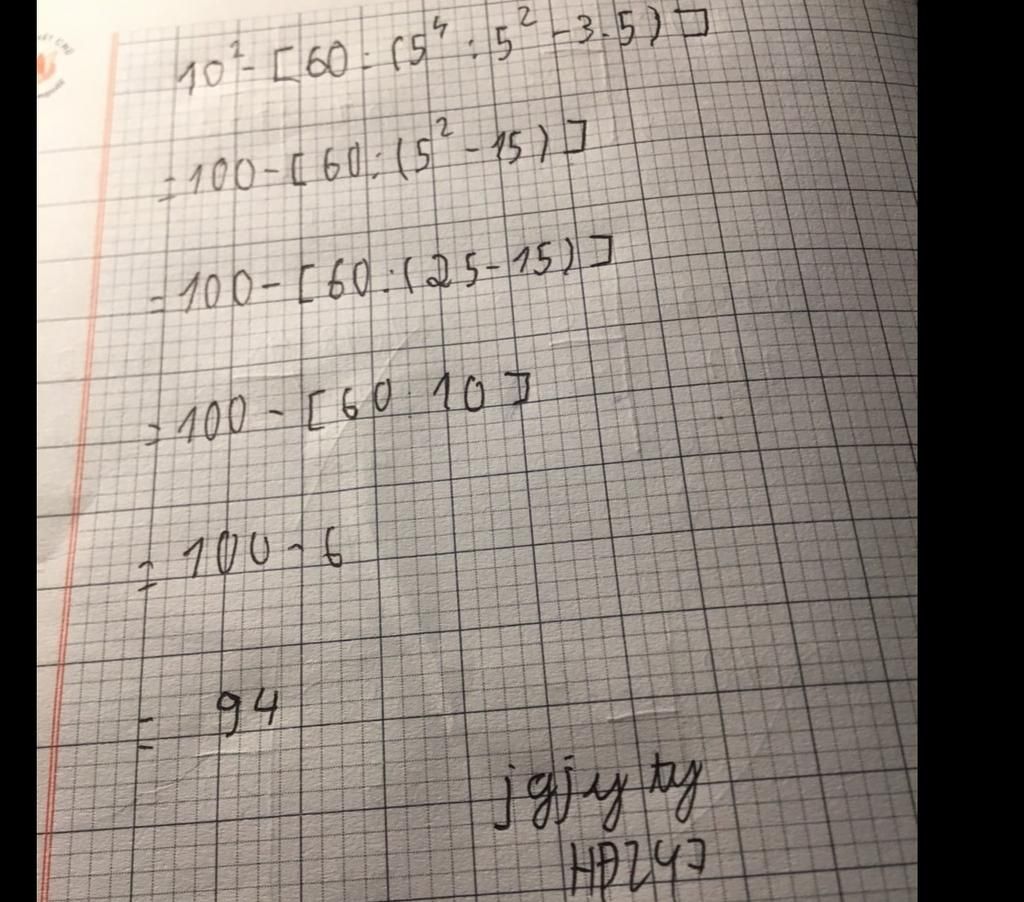 10² - [60 : (5⁴ : 5² - 3.5)]
= 100 - [60 : (5² - 15)]
= 100 - [60 : (25 - 15)]
= 100 - [60 : 10]
= 100 - 6
= 94
jgjy ty